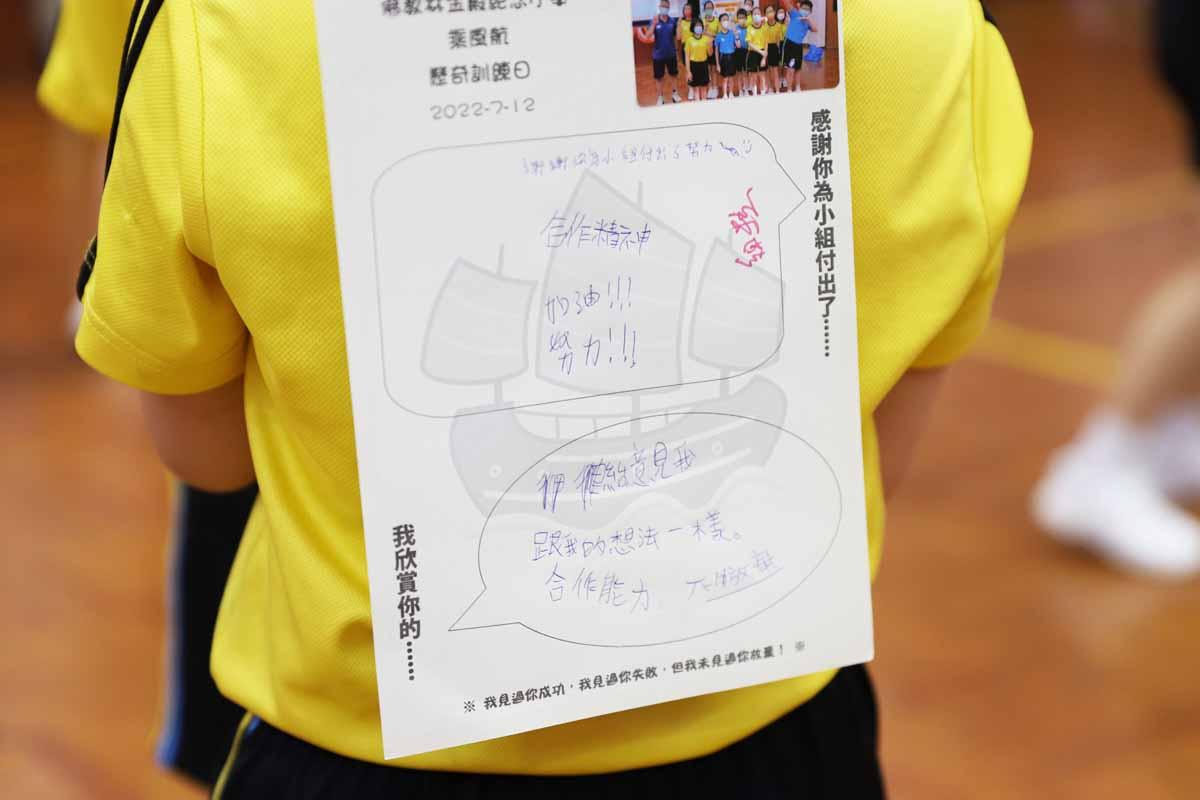 佛教林金殿紀念小學
乘風航
歷奇訓練日
2022-7-12
感謝你為小組付出了……
謝謝你為小組付出了努力
合作精神
加油!!!
努力!!!
給意見我
跟我的想法一樣。
合作能力
我欣賞你的……
※ 我見過你成功，我見過你失敗，但我未見過你放棄！ ※